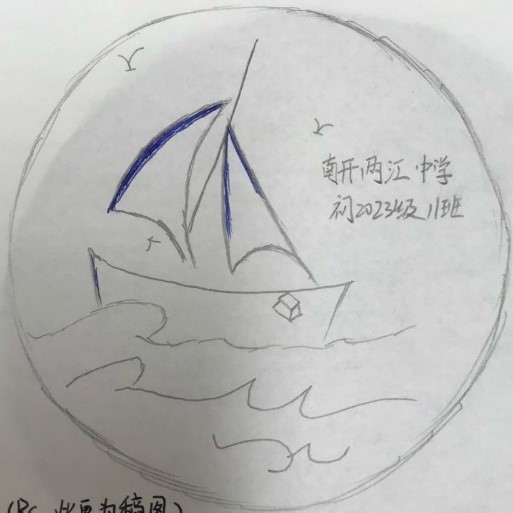 南开两江中学
初2023级11班
(Ps 此更为稿图)